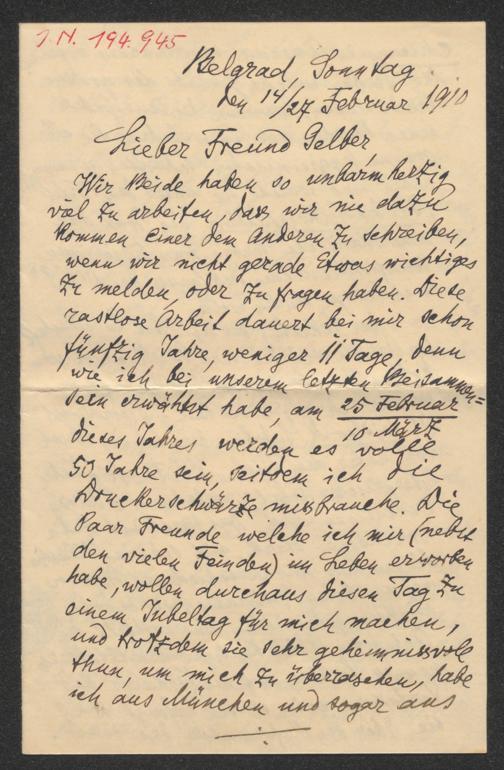 J.N. 194.945
Belgrad, Sonntag
den 14/27 Februar 1910
Lieber Freund Gelber
Wir Beide haben so unbarmherzig
viel zu arbeiten, dass wir nie dazu
kommen einer dem Anderen zu schreiben,
wenn wir nicht gerade Etwas wichtiges
zu melden, oder zu fragen haben. Diese
rastlose Arbeit dauert bei mir schon
fünfzig Jahre, weniger 11 Tage, denn
wie ich bei unserem letzten Beisammen=
sein erwähnt habe, am 25 Februar
10 März
dieses Jahres werden es volle
50 Jahre sein, seitdem ich die
Druckerschwärze missbrauche. Die
Paar Freunde welche ich mir (nebst
den vielen Feinden) im Leben erworben
habe, wollen durchaus diesen Tag zu
einem Jubeltag für mich machen,
und trotzdem sie sehr geheimnissvoll
thun, um mich zu überraschen, habe
ich aus München und sogar aus